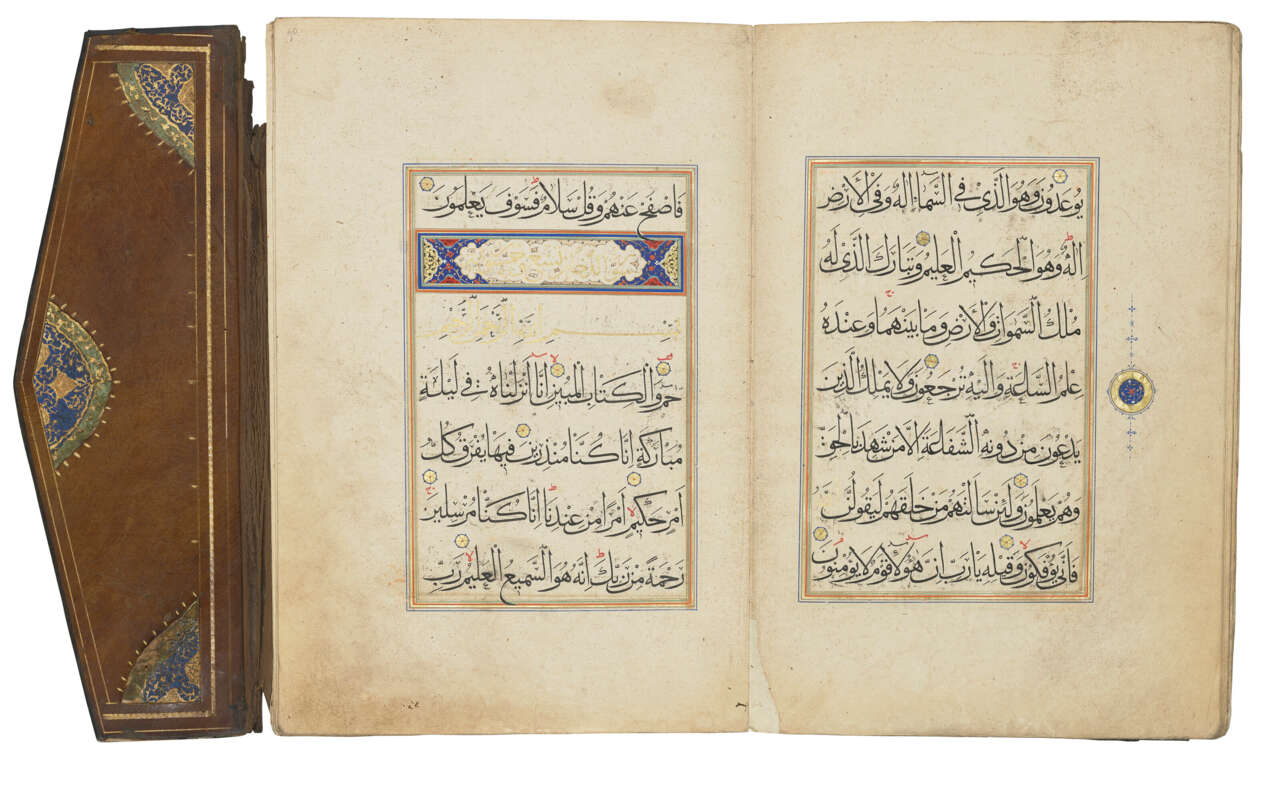 يوعدون وهو الذى فى السماء اله وفى الارض
اله وهو الحكيم العليم وتبارك الذى له
ملك السموات والارض وما بينهما وعنده
علم الساعة واليه ترجعون ولا يملك الذين
يدعون من دونه الشفاعة الا من شهد بالحق
وهم يعلمون ولئن سالتهم من خلقهم ليقولن الله
فانى يؤفكون وقيله يا رب ان هؤلاء قوم لا يومنون
فاصفح عنهم وقل سلام فسوف يعلمون
بسم الله الرحمن الرحيم
حم والكتاب المبين انا انزلناه فى ليلة
مباركة انا كنا منذرين فيها يفرق كل
امر حكيم امرا من عندنا انا كنا مرسلين
رحمة من ربك انه هو السميع العليم رب